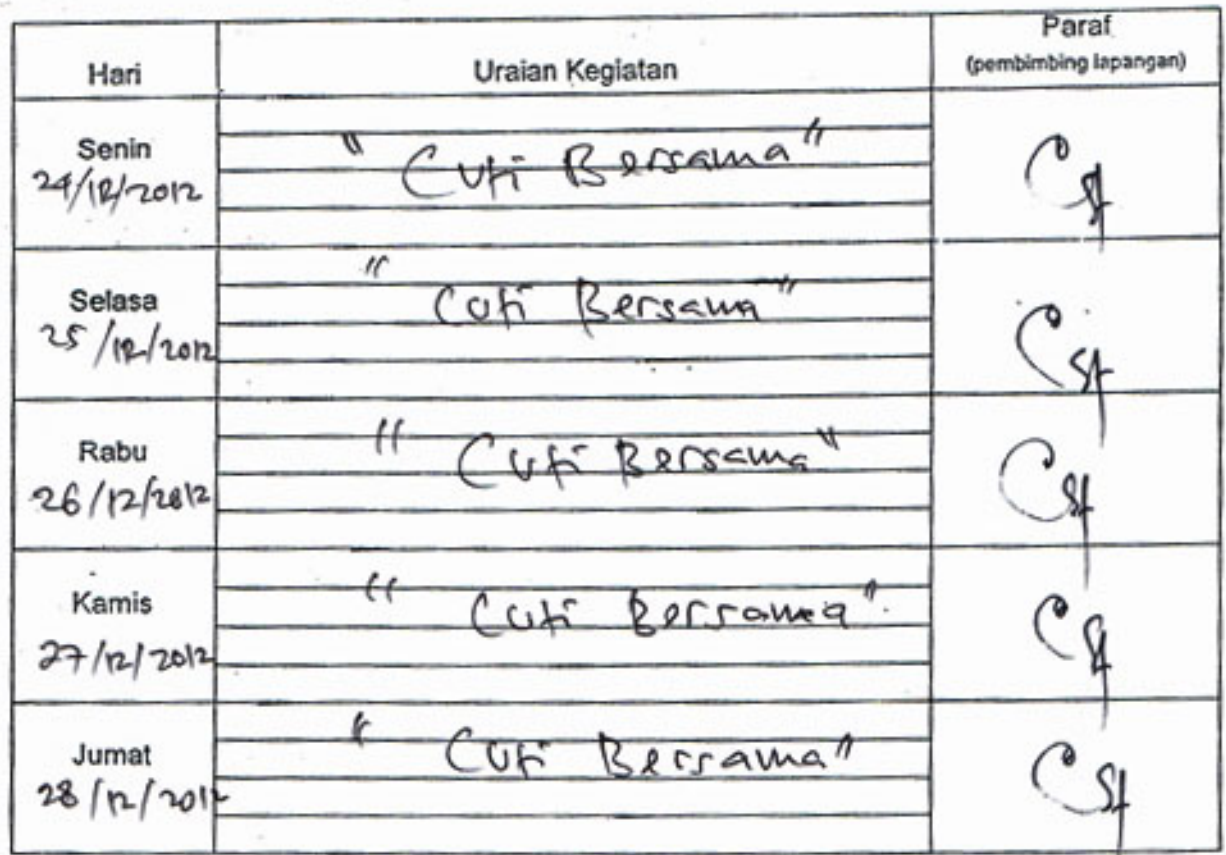 Hari Uraian Kegiatan Paraf
(pembimbing lapangan)
Senin
24/12/2012 " Cuti Bersama "
Selasa
25/12/2012 " Cuti Bersama "
Rabu
26/12/2012 " Cuti Bersama "
Kamis
27/12/2012 " Cuti Bersama "
Jumat
28/12/2012 " Cuti Bersama "